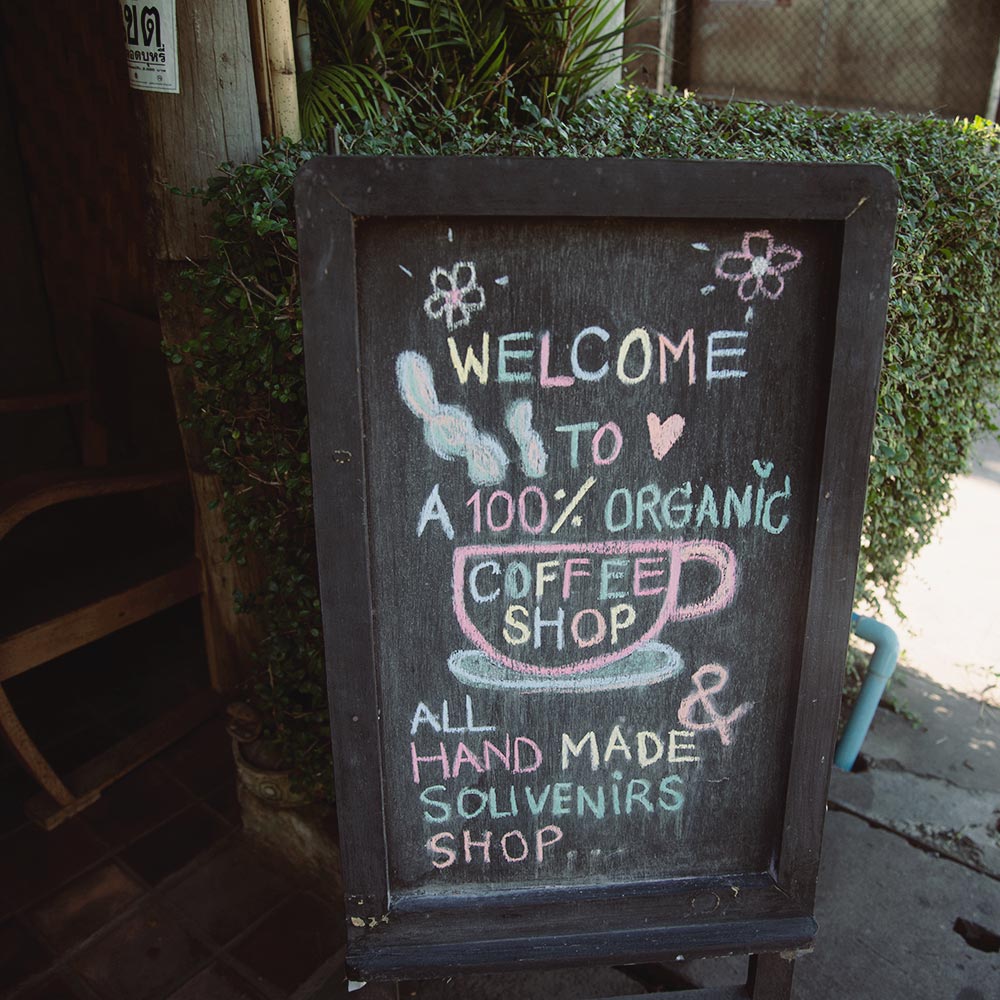 ขต
อดบุหรี่
WELCOME
TO
A 100% ORGANIC
COFFEE
SHOP
&
ALL
HAND MADE
SOUVENIRS
SHOP...